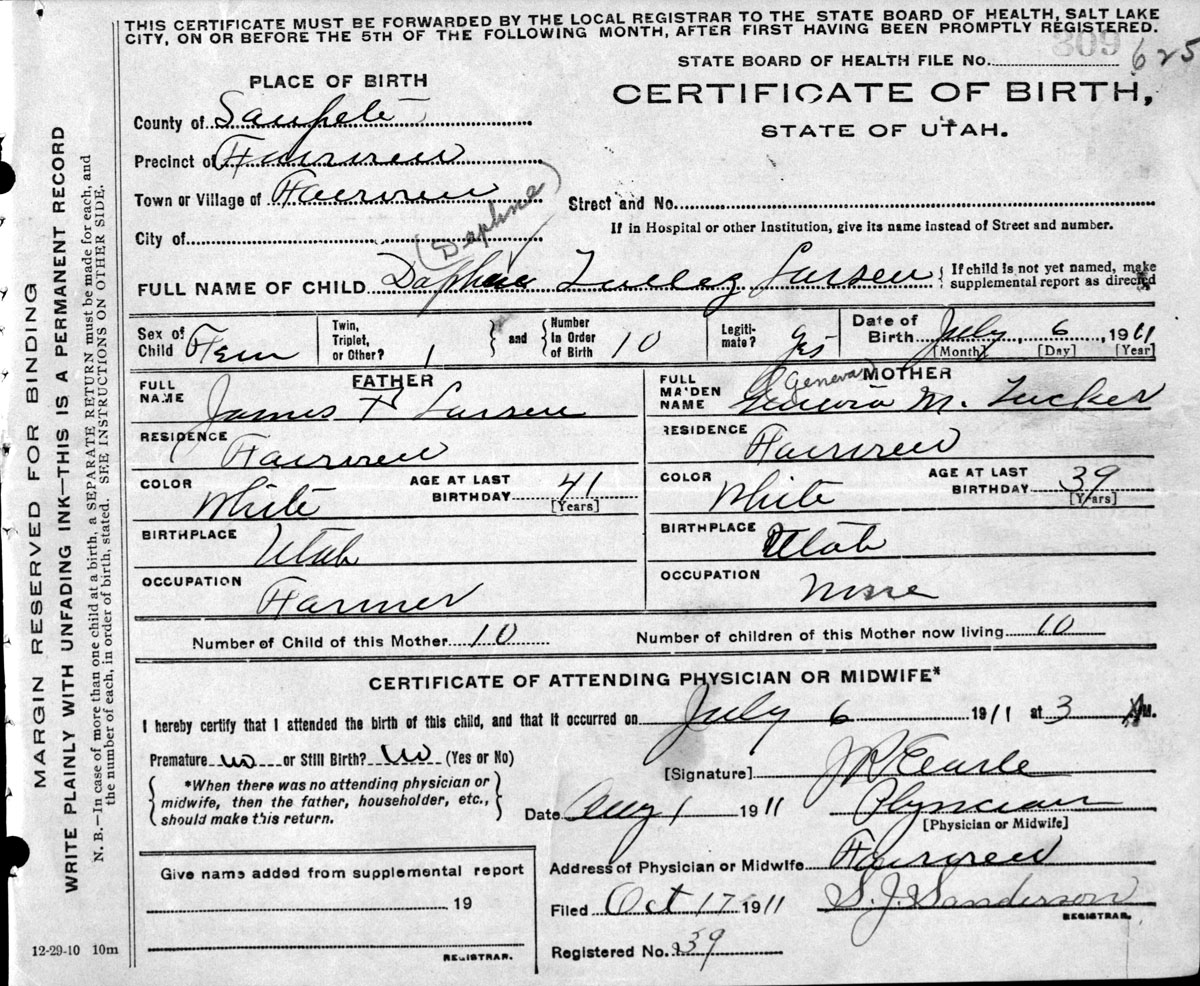 THIS CERTIFICATE MUST BE FORWARDED BY THE LOCAL REGISTRAR TO THE STATE BOARD OF HEALTH, SALT LAKE
CITY, ON OR BEFORE THE 5TH OF THE FOLLOWING MONTH, AFTER FIRST HAVING BEEN PROMPTLY REGISTERED.
309
STATE BOARD OF HEALTH FILE No. 625
PLACE OF BIRTH
CERTIFICATE OF BIRTH,
STATE OF UTAH.
County of Sanpete
Precinct of Fairview
Town or Village of Fairview
Street and No.
City of
If in Hospital or other Institution, give its name instead of Street and number.
(Daphne)
FULL NAME OF CHILD Larsen { If child is not yet named, make
supplemental report as directed
Sex of Child Fem
Twin, Triplet, or Other? 1 } and { Number In Order of Birth 10
Legiti-mate? Yes
Date of Birth July 6 1911
[Month] [Day] [Year]
FATHER
FULL NAME James T Larsen
RESIDENCE Fairview
COLOR White AGE AT LAST BIRTHDAY 41
[Years]
BIRTHPLACE Utah
OCCUPATION Farmer
MOTHER
Geneva
FULL MAIDEN NAME M. Tucker
RESIDENCE Fairview
COLOR White AGE AT LAST BIRTHDAY 39
[Years]
BIRTHPLACE Utah
OCCUPATION None
Number of Child of this Mother 10 Number of children of this Mother now living 10
CERTIFICATE OF ATTENDING PHYSICIAN OR MIDWIFE*
I hereby certify that I attended the birth of this child, and that it occurred on July 6 1911 at 3 M.
Premature no or Still Birth? No (Yes or No)
*When there was no attending physician or
midwife, then the father, householder, etc.,
should make this return.
[Signature]
Date Aug 1 1911 Physician
[Physician or Midwife]
Address of Physician or Midwife Fairview
Give name added from supplemental report
19
REGISTRAR.
Filed Oct 17 1911 S. J. Sanderson
REGISTRAR.
Registered No. 39
12-29-10 10m
MARGIN RESERVED FOR BINDING
WRITE PLAINLY WITH UNFADING INK—THIS IS A PERMANENT RECORD
N. B.—In case of more than one child at a birth, a SEPARATE RETURN must be made for each, and
the number of each, in order of birth, stated. SEE INSTRUCTIONS ON OTHER SIDE.